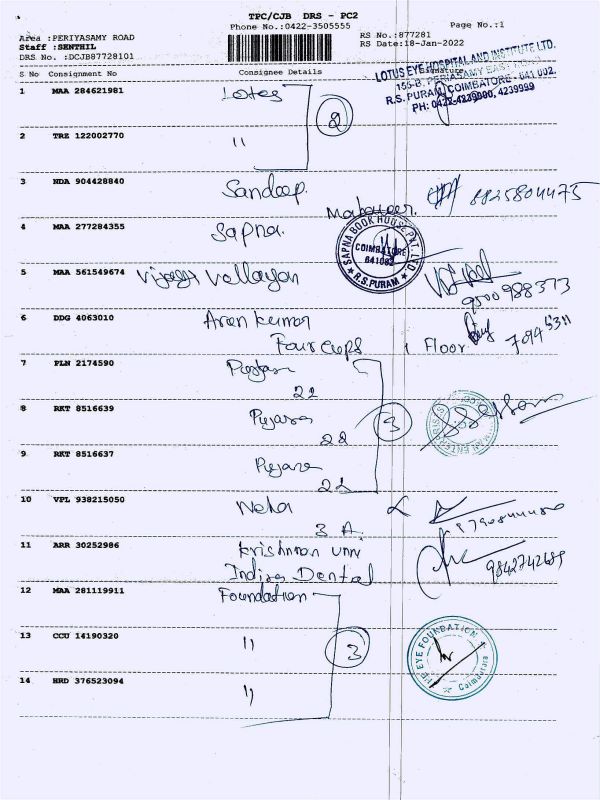 TPC/CJB DRS - PC2
Phone No.:0422-3505555 Page No.:1
Area :PERIYASAMY ROAD RS No.:877281
Staff :SENTHIL RS Date:18-Jan-2022
DRS No. :DCJB87728101
S No Consignment No Consignee Details Signature
LOTUS EYE HOSPITAL AND INSTITUTE LTD.
155-B, PERIASAMY EAST
R.S. PURAM, COIMBATORE - 641 002.
PH: 0422-4239900, 4239999
1 MAA 284621981 Lotus
2
2 TRE 122002770 "
3 NDA 904428840 Sandeep. 8825804475
4 MAA 277284355 Sapna.
SAPNA BOOK HOUSE PVT. LTD.
COIMBATORE
641002
R.S.PURAM
5 MAA 561549674 Vijaya Vallayan
9500988373
6 DDG 4063010 Arun Kumar
Four cups 1 Floor 7094 5311
7 PLN 2174590
22
8 RKT 8516639 Pujara
22
3
9 RKT 8516637 Pujara
22
10 VPL 938215050 Neha
3 A.
11 ARR 30252986 Krishnan
Indira Dental 9842742689
12 MAA 281119911 Foundation
13 CCU 14190320 "
3
EYE FOUNDATION
Coimbatore
14 HRD 376523094 "